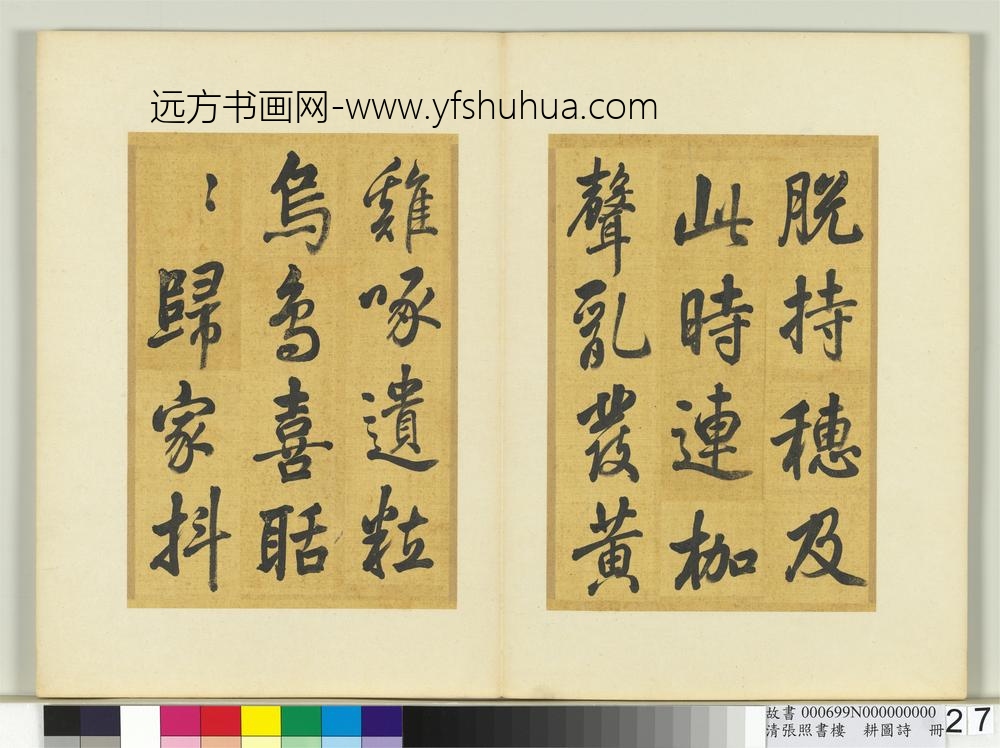 远方书画网-www.yfshuhua.com
脱持穗及
此時連枷
聲亂發黄
雞啄遺粒
烏鳥喜聒
〻歸家抖
故書 000699N000000000
清張照書樓 耕圖詩 冊
27